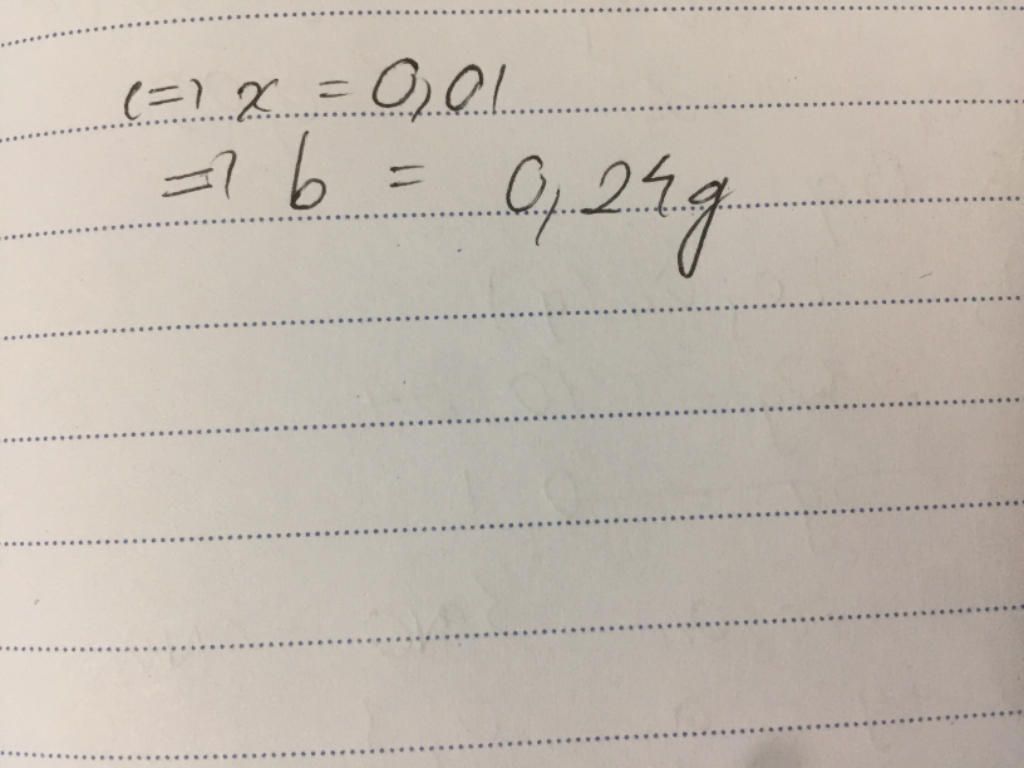 <=> x = 0,01
=> b = 0,24g